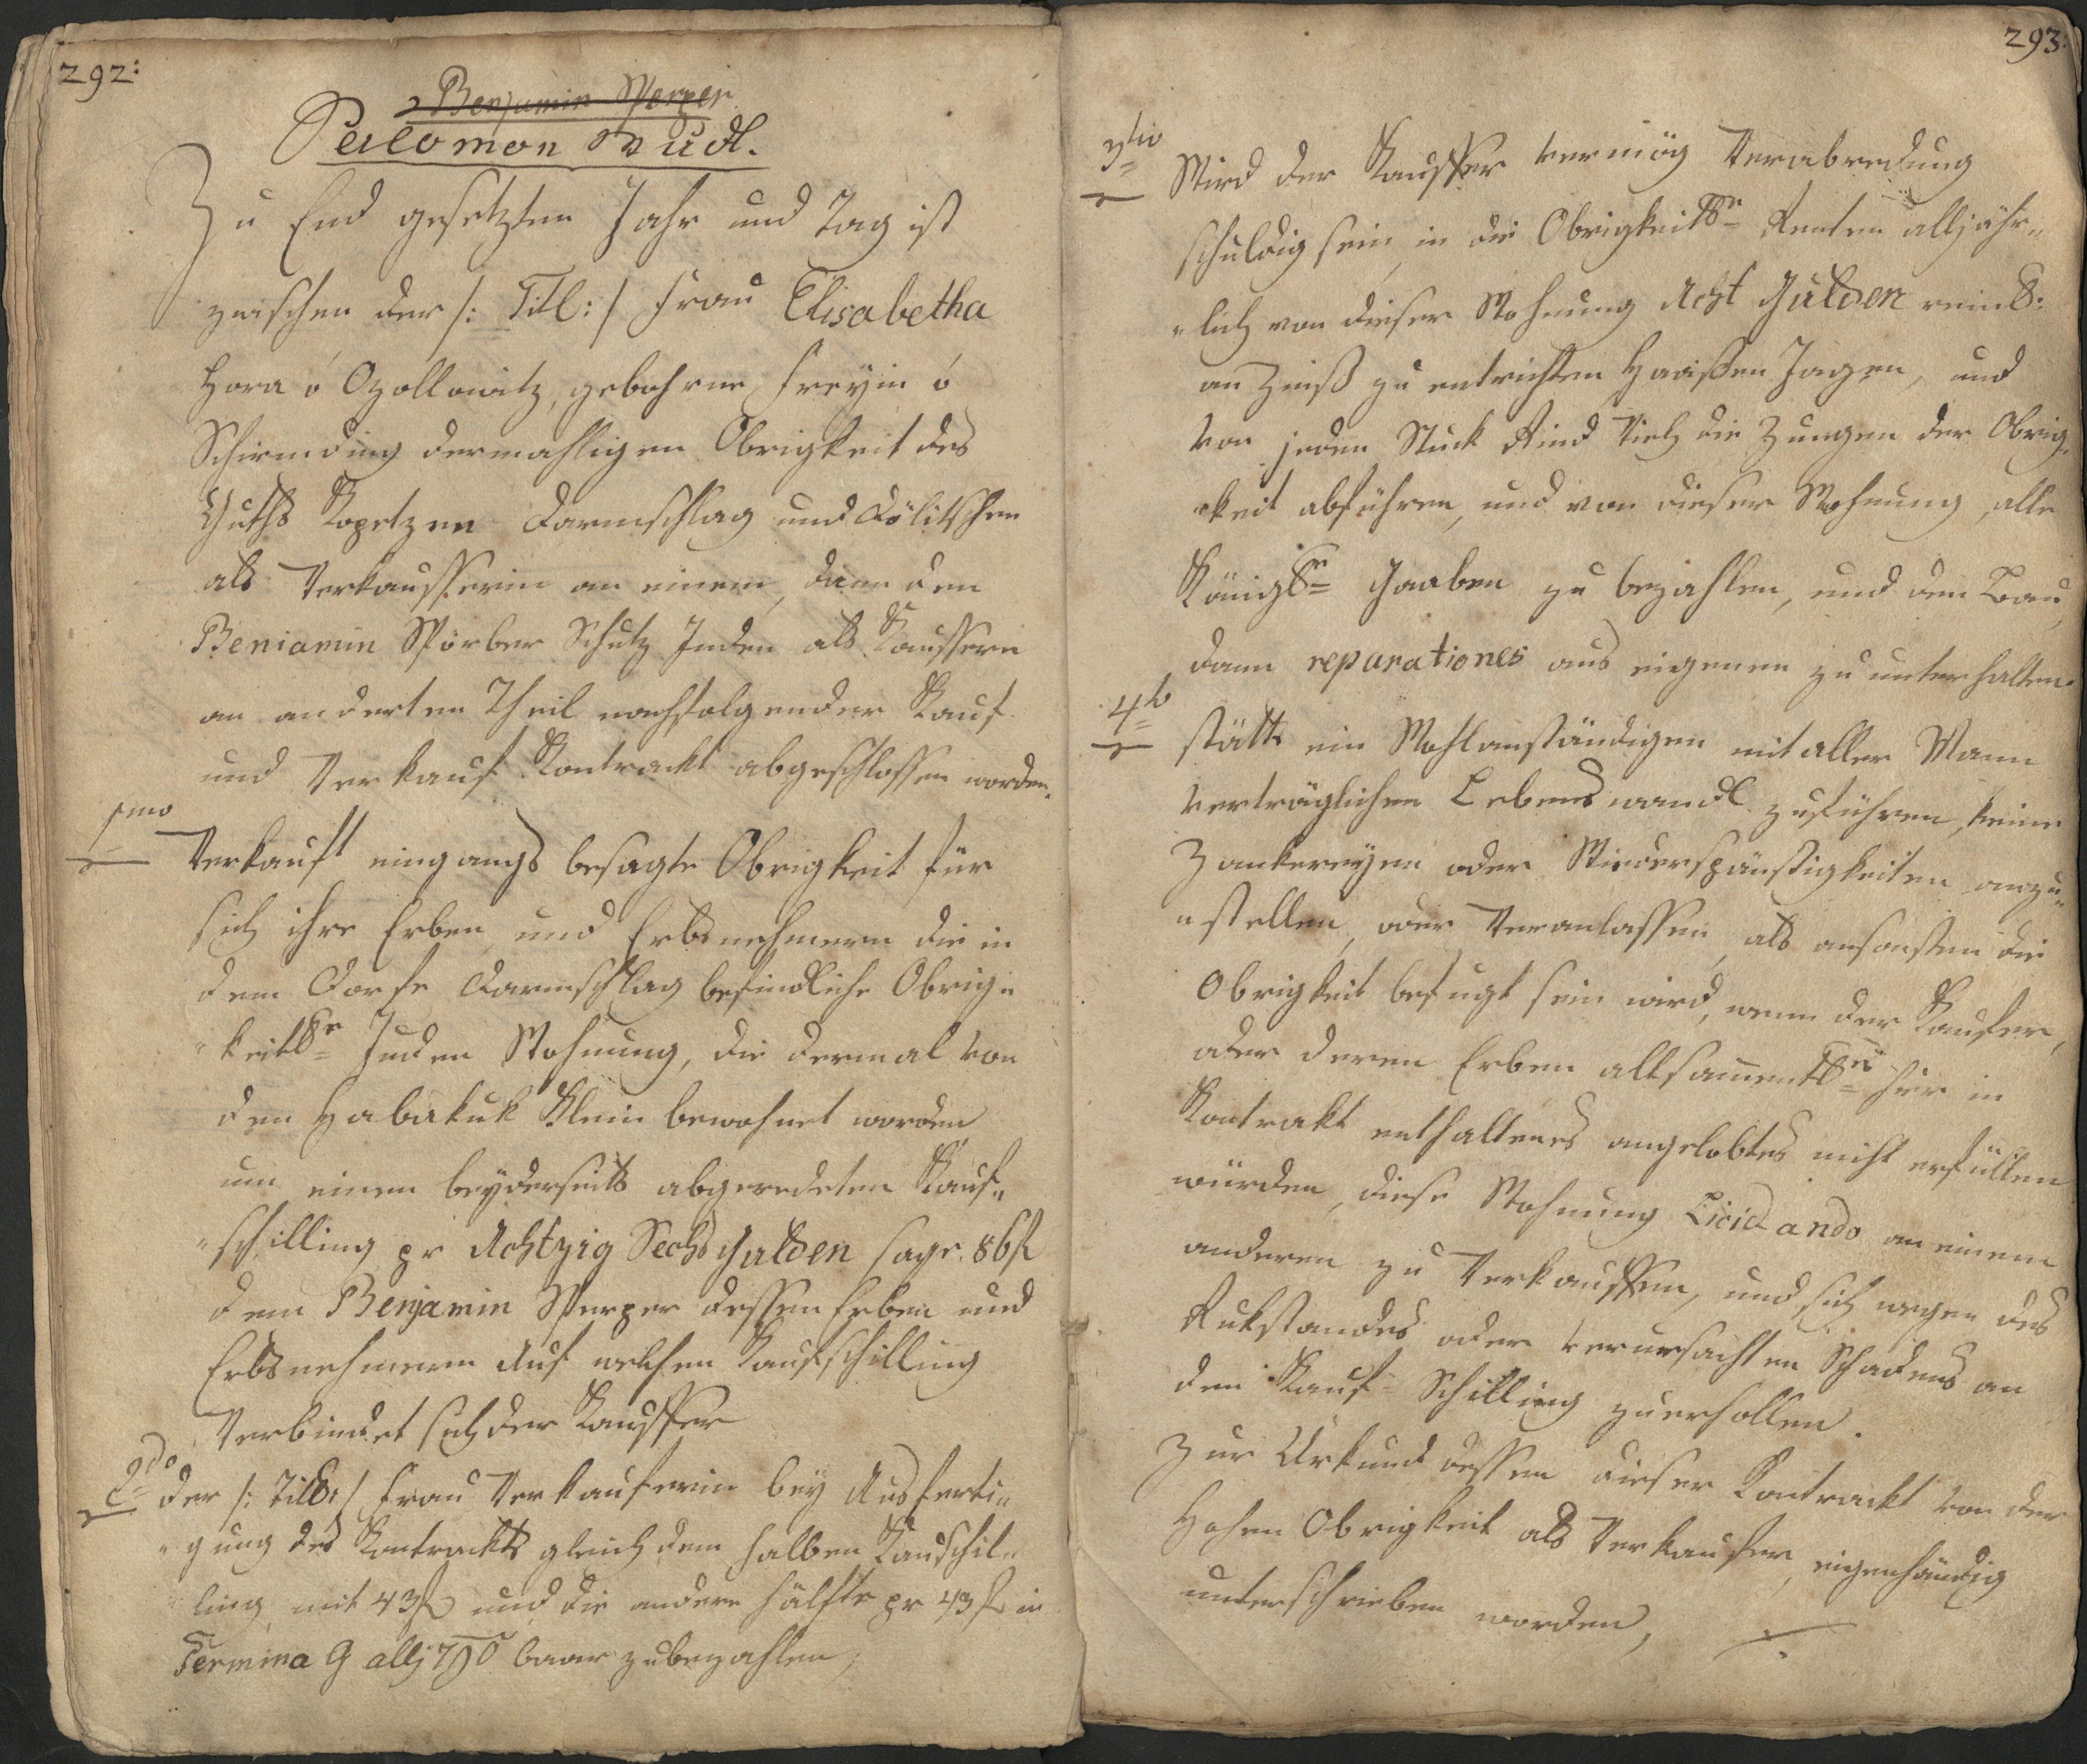 292:
Benjamin Sperper
Salomon Budl.
Zu End gesetzten Jahr und Tag ist
zwischen der /: Titl: / Frau Elisabetha
Hora ó Ozollowitz, gebohrne Freÿin ó
Schirnding dermahligen Obrigkeit des
Guths Kopetzen Darmschlag und Dölitschen
als Verkaufferin an einem, dann dem
Beniamin Spörber Schutz Juden als Kauffern
an anderten Theil nachfolgender Kauf
und Verkauf Kontrackt abgeschlossen worden.
1mo
Verkauft eingangs besagte Obrigkeit für
sich ihre Erben, und Erbsnehmern die in
dem Dorfe Darmschlag befindliche Obrig„
„keitln Juden Wohnung, die dermal von
den Habakuk Klein bewohnet worden
um einen beÿderseits abgeredeten Kauf„
„schilling pr Achtzig Sechs Gulden sage 86 f
dem Benjamin Sperper dessen Erben und
Erbsnehmern Auf welchen Kaufschilling
Verbindet sich der Kauffer
2do
der /: Titl: / Frau Verkauferin beÿ Ausferti„
„gung des Kontrackts gleich dem halben Kauschil„
ling mit 43 f und die andere Hälfte pr 43 f in
Termina G allj 790 baar zubezahlen,
293:
3tio
Wird der Kauffer vermög Verabredung
schuldig sein, in die Obrigkeitln Renten alljähr„
„lich von dieser Wohnung Acht Gulden reinl:
an Zinß zu entrichten Haasßen Jagen, und
von jeden Stück Rind Vieh die Zungen der Obrig„
„keit abführen, und von dieser Wohnung, alle
Königln Gaaben zu bezahlen, und den Bau,
dann reparationes aus eigenen zu unterhalten.
4to
stätts ein Wohlanständigen mit aller Mann
verträglichen Lebenswandl zuführen, keine
Zankereÿen oder Wiederspänstigkeiten anzu„
„stellen, oder Veranlassen, als ansonsten die
Obrigkeit befugt sein wird, wenn der Kaufer,
oder deren Erben allsamentln hier in
Kontrakt enthaltenes angelobtes nicht erfüllen
würden, diese Wohnung Licitando an einem
anderen zu Verkauffen, und sich wegen des
Rukstandes oder verursachten Schadens an
den Kauf-Schilling zuerhollen.
Zur Urkund dessen dieser Kontrackt von der
Hohen Obrigkeit als Verkaufer, eigenhändig
unterschrieben worden,